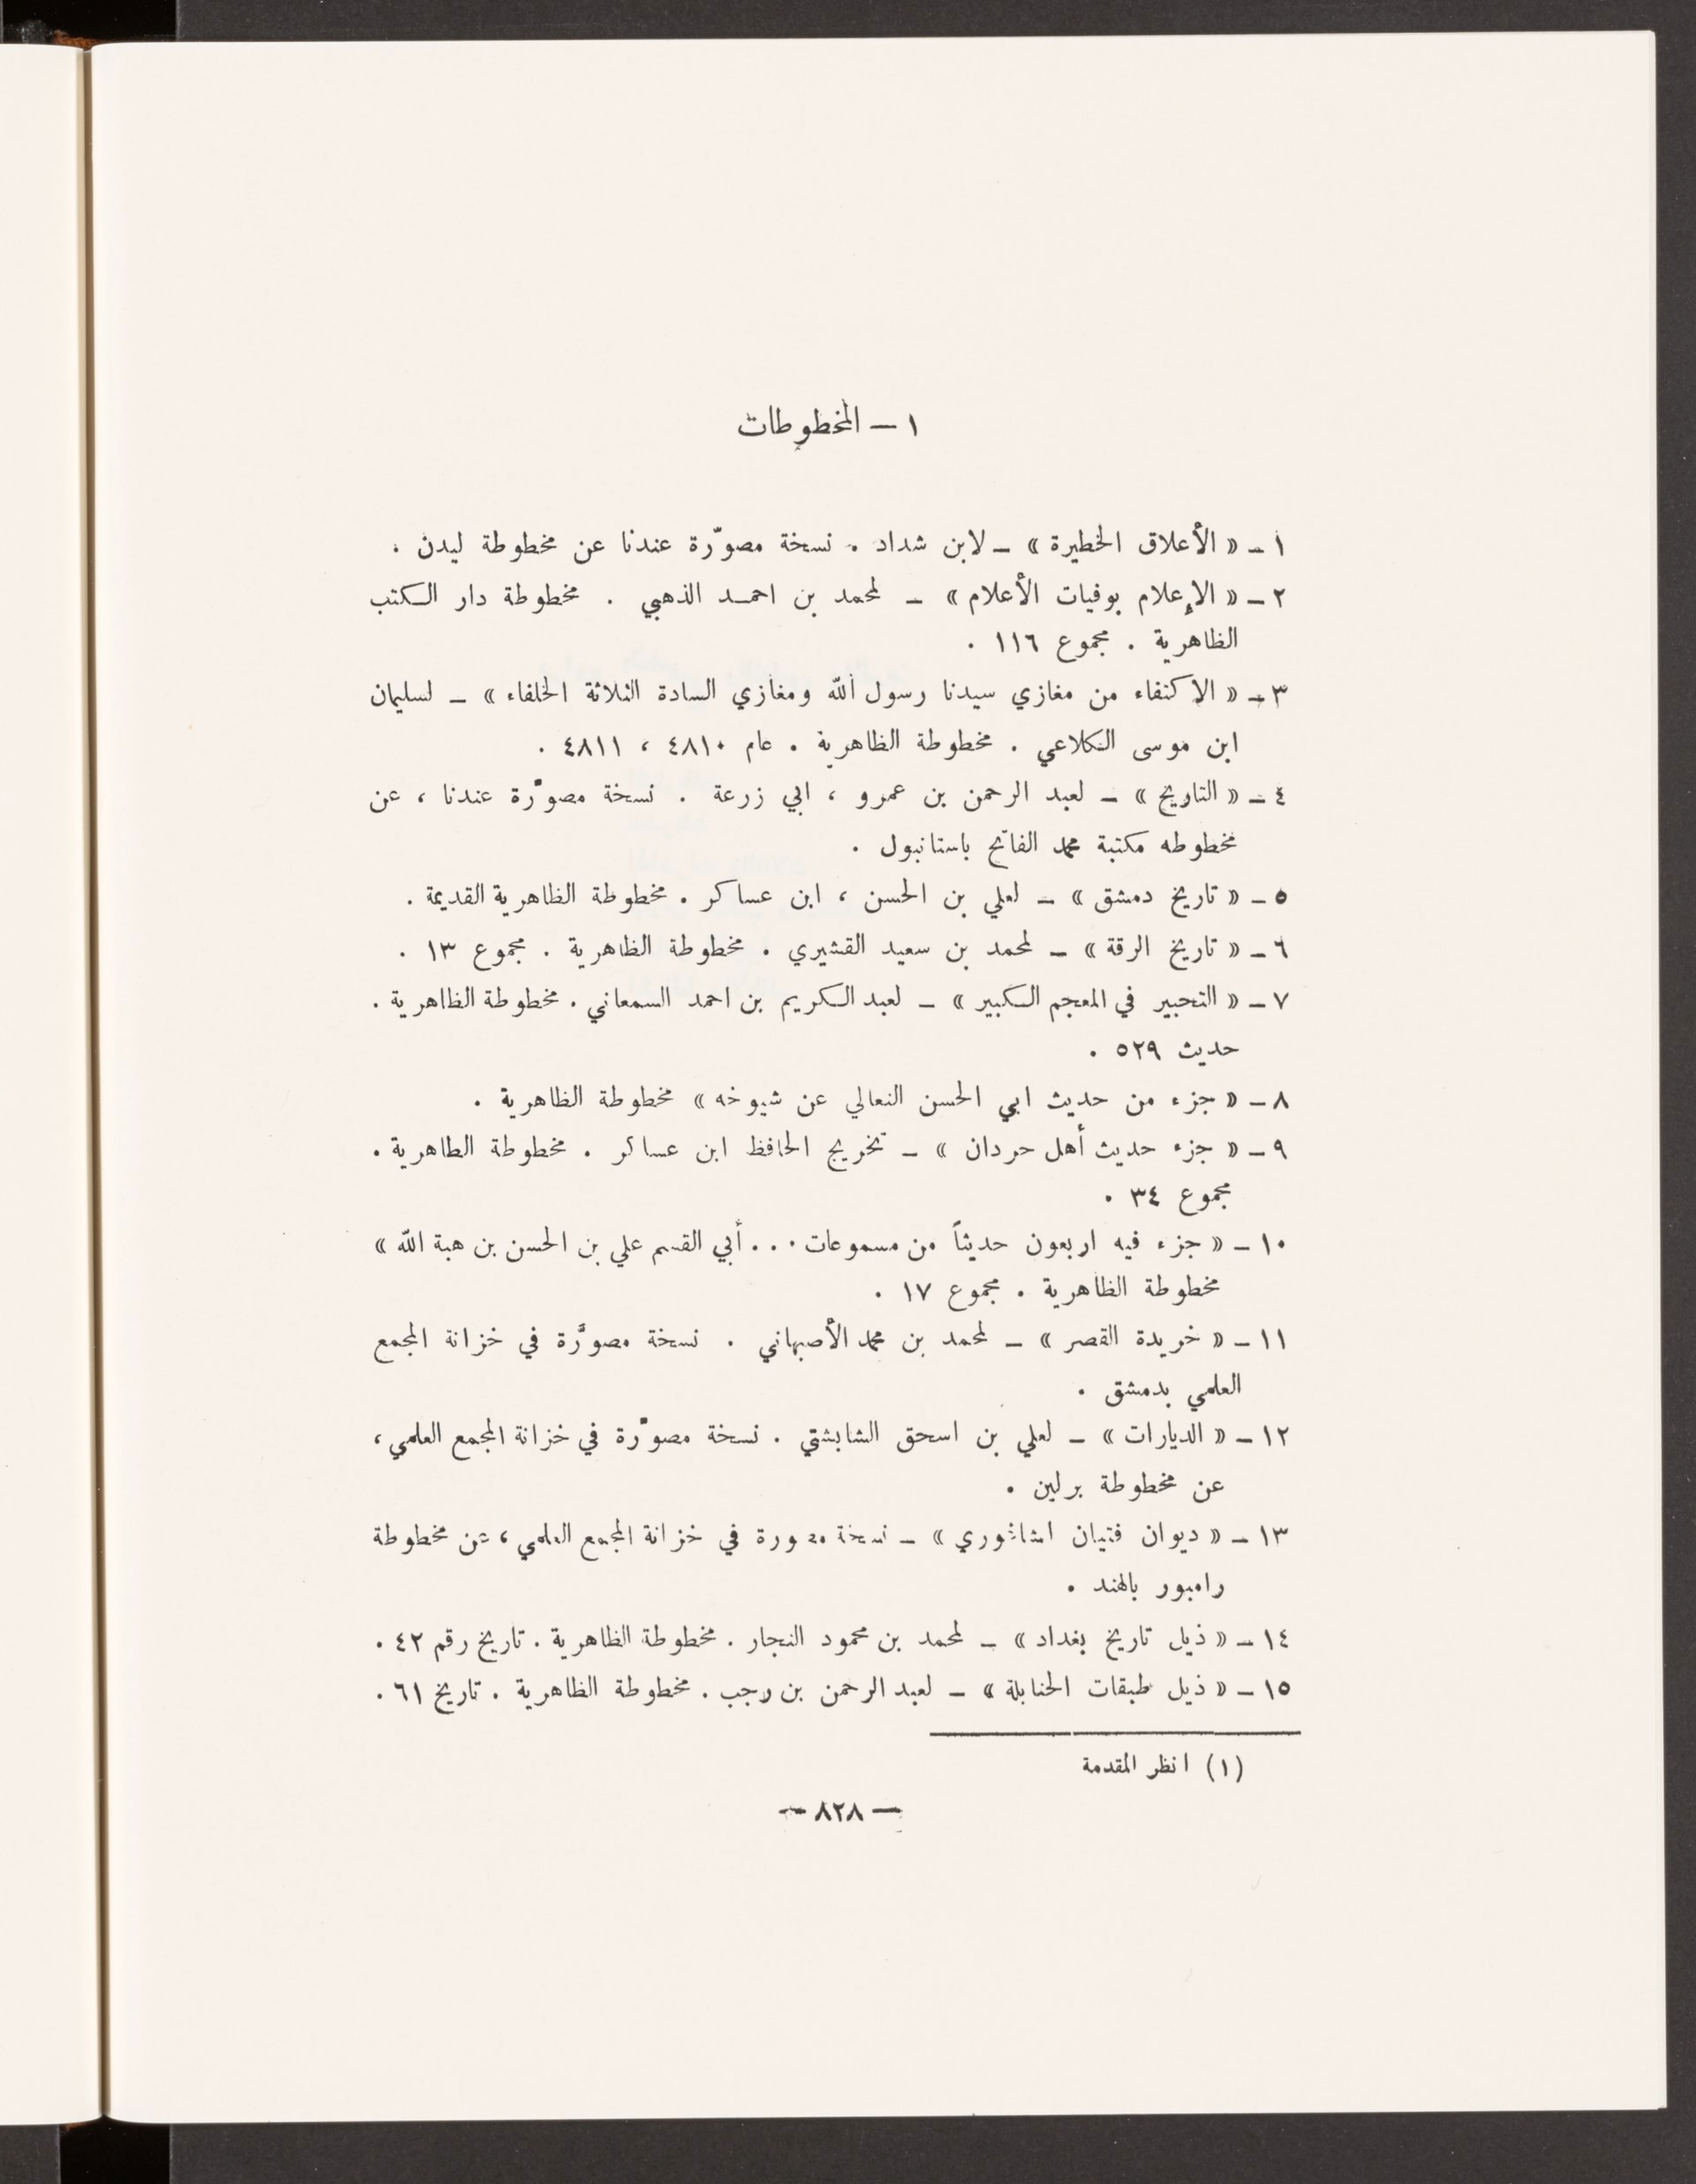 ١ – المخطوطات
١ – « الأعلاق الخطيرة » – لابن شداد . نسخة مصوّرة عندنا عن مخطوطة ليدن .
٢ – « الإعلام بوفيات الأعلام » – لمحمد بن احمد الذهبي . مخطوطة دار الكتب
الظاهرية . مجموع ١١٦ .
٣ – « الاكتفاء من مغازي سيدنا رسول الله ومغازي السادة الثلاثة الخلفاء » – لسليمان
ابن موسى الكلاعي . مخطوطة الظاهرية . عام ٤٨١٠ ، ٤٨١١ .
٤ – « التاريخ » – لعبد الرحمن بن عمرو ، ابي زرعة . نسخة مصوّرة عندنا ، عن
مخطوطه مكتبة محمد الفاتح باستانبول .
٥ – « تاريخ دمشق » – لعلي بن الحسن ، ابن عساكر . مخطوطة الظاهرية القديمة .
٦ – « تاريخ الرقة » – لمحمد بن سعيد القشيري . مخطوطة الظاهرية . مجموع ١٣ .
٧ – « التحبير في المعجم الكبير » – لعبد الكريم بن احمد السمعاني . مخطوطة الظاهرية .
حديث ٥٢٩ .
٨ – « جزء من حديث ابي الحسن النعالي عن شيوخه » مخطوطة الظاهرية .
٩ – « جزء حديث أهل حردان » – تخريج الحافظ ابن عساكر . مخطوطة الظاهرية .
مجموع ٣٤ .
١٠ – « جزء فيه اربعون حديثاً من مسموعات . . . أبي القسم علي بن الحسن بن هبة الله »
مخطوطة الظاهرية . مجموع ١٧ .
١١ – « خريدة القصر » – لمحمد بن محمد الأصبهاني . نسخة مصوَّرة في خزانة المجمع
العلمي بدمشق .
١٢ – « الديارات » – لعلي بن اسحق الشابشتي . نسخة مصوَّرة في خزانة المجمع العلمي ،
عن مخطوطة برلين .
١٣ – « ديوان فتيان الشاغوري » – نسخة مصورة في خزانة المجمع العلمي ، عن مخطوطة
رامبور بالهند .
١٤ – « ذيل تاريخ بغداد » – لمحمد بن محمود النجار . مخطوطة الظاهرية . تاريخ رقم ٤٢ .
١٥ – « ذيل طبقات الحنابلة » – لعبد الرحمن بن رجب . مخطوطة الظاهرية . تاريخ ٦١ .
(١) انظر المقدمة
– ٨٢٨ –